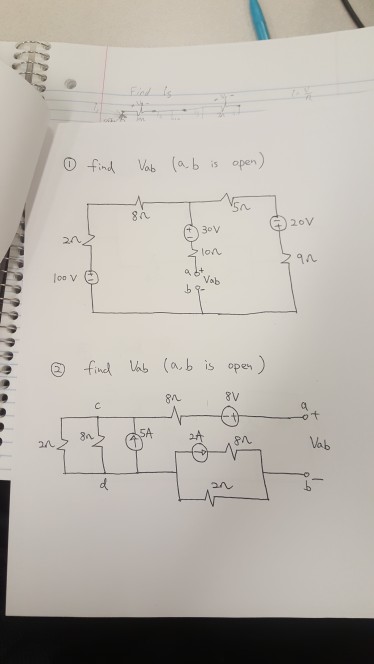 Find
① find Vab (a,b is open)
8Ω
5Ω
+
-
30V
+
-
20V
2Ω
10Ω
9Ω
100V
+
-
a
+
Vab
b
-
② find Vab (a,b is open)
8Ω
8V
a
c
- +
+
2Ω
8Ω
5A
2A
8Ω
Vab
d
2Ω
b
-